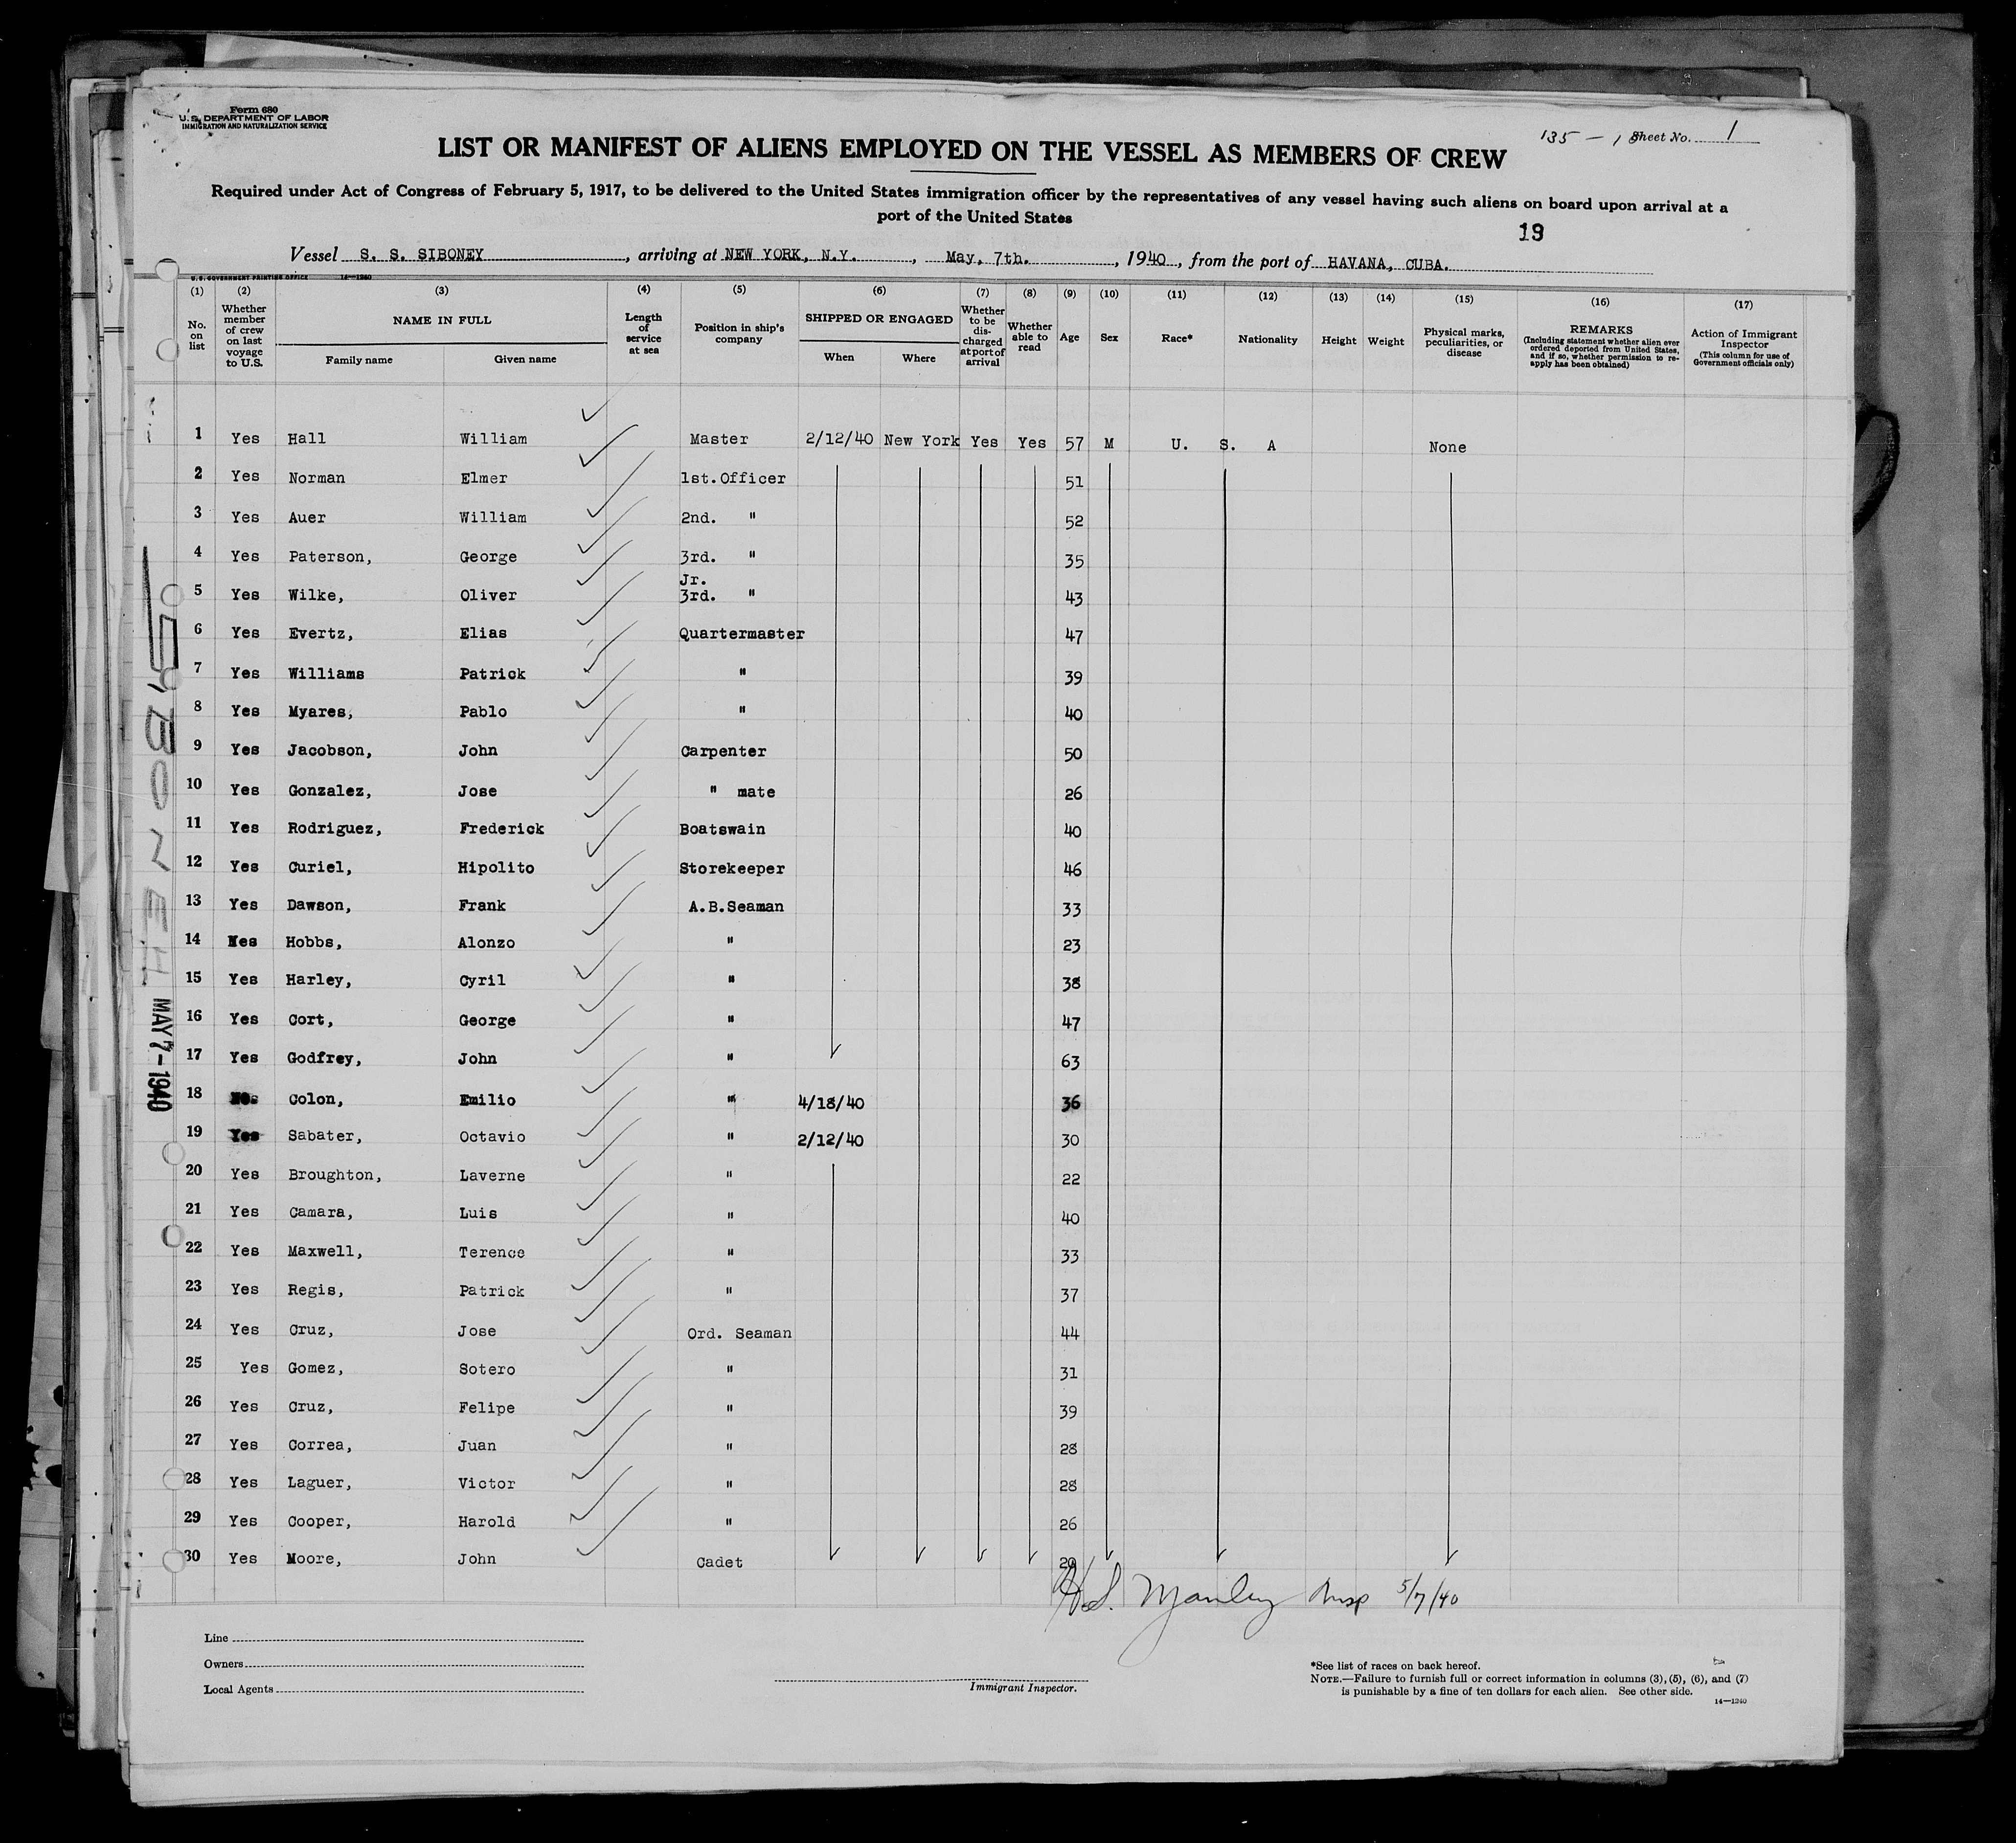 Form 680
U. S. DEPARTMENT OF LABOR
IMMIGRATION AND NATURALIZATION SERVICE
135 - 1 Sheet No. 1
LIST OR MANIFEST OF ALIENS EMPLOYED ON THE VESSEL AS MEMBERS OF CREW
Required under Act of Congress of February 5, 1917, to be delivered to the United States immigration officer by the representatives of any vessel having such aliens on board upon arrival at a
port of the United States
13
Vessel S. S. SIBONEY, arriving at NEW YORK, N.Y., May, 7th., 1940, from the port of HAVANA, CUBA.
U. S. GOVERNMENT PRINTING OFFICE 14—1240
(1) (2) (3) (4) (5) (6) (7) (8) (9) (10) (11) (12) (13) (14) (15) (16) (17)
No. on list
Whether member of crew on last voyage to U.S.
NAME IN FULL
Family name
Given name
Length of service at sea
Position in ship's company
SHIPPED OR ENGAGED
When
Where
Whether to be discharged at port of arrival
Whether able to read
Age
Sex
Race*
Nationality
Height
Weight
Physical marks, peculiarities, or disease
REMARKS
(Including statement whether alien ever ordered deported from United States, and if so, whether permission to re-apply has been obtained)
Action of Immigrant Inspector
(This column for use of Government officials only)
1 Yes Hall William Master 2/12/40 New York Yes Yes 57 M U. S. A None
2 Yes Norman Elmer 1st.Officer 51
3 Yes Auer William 2nd. " 52
4 Yes Paterson, George 3rd. " 35
5 Yes Wilke, Oliver Jr. 3rd. " 43
6 Yes Evertz, Elias Quartermaster 47
7 Yes Williams Patrick " 39
8 Yes Myares, Pablo " 40
9 Yes Jacobson, John Carpenter 50
10 Yes Gonzalez, Jose " mate 26
11 Yes Rodriguez, Frederick Boatswain 40
12 Yes Curiel, Hipolito Storekeeper 46
13 Yes Dawson, Frank A.B.Seaman 33
14 Yes Hobbs, Alonzo " 23
15 Yes Harley, Cyril " 38
16 Yes Cort, George " 47
17 Yes Godfrey, John " 63
18 Colon, Emilio " 4/18/40 36
19 Yes Sabater, Octavio " 2/12/40 30
20 Yes Broughton, Laverne " 22
21 Yes Camara, Luis " 40
22 Yes Maxwell, Terence " 33
23 Yes Regis, Patrick " 37
24 Yes Cruz, Jose Ord. Seaman 44
25 Yes Gomez, Sotero " 31
26 Yes Cruz, Felipe " 39
27 Yes Correa, Juan " 28
28 Yes Laguer, Victor " 28
29 Yes Cooper, Harold " 26
30 Yes Moore, John Cadet
H.S. Manley Insp 5/7/40
MAY 7 - 1940
Line
Owners
Local Agents
Immigrant Inspector.
*See list of races on back hereof.
NOTE.—Failure to furnish full or correct information in columns (3), (5), (6), and (7)
is punishable by a fine of ten dollars for each alien. See other side.
14—1240